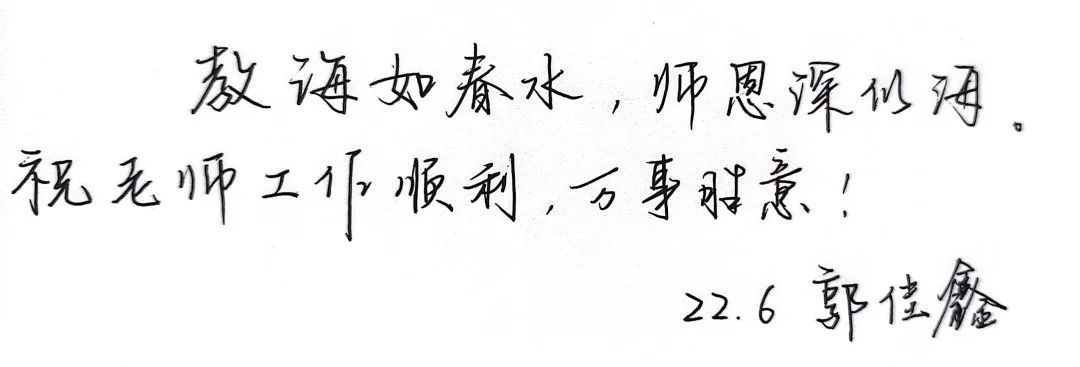 教诲如春水，师恩深似海。
祝老师工作顺利，万事胜意！
22.6 郭佳鑫